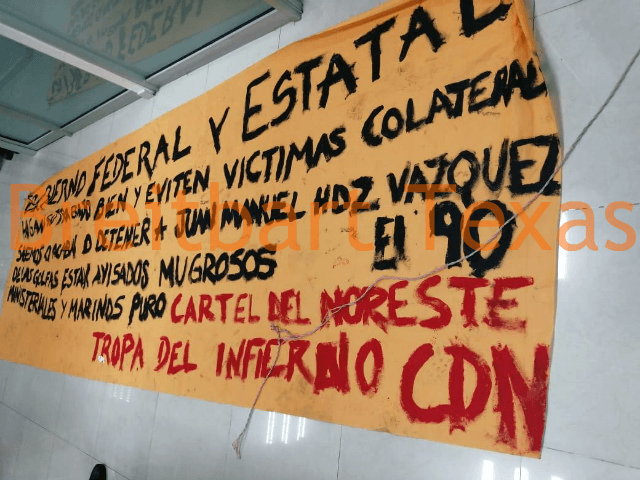 GOBIERNO FEDERAL Y ESTATAL
HAGAN SU TRABAJO BIEN Y EVITEN VICTIMAS COLATERAL
DETENER A JUAN MANUEL HDZ VAZQUEZ
EL 90
DE LAS GOLFAS ESTAN AVISADOS MUGROSOS
MINISTERIALES Y MARINOS PURO CARTEL DEL NORESTE
TROPA DEL INFIERNO CDN
Breitbart Texas